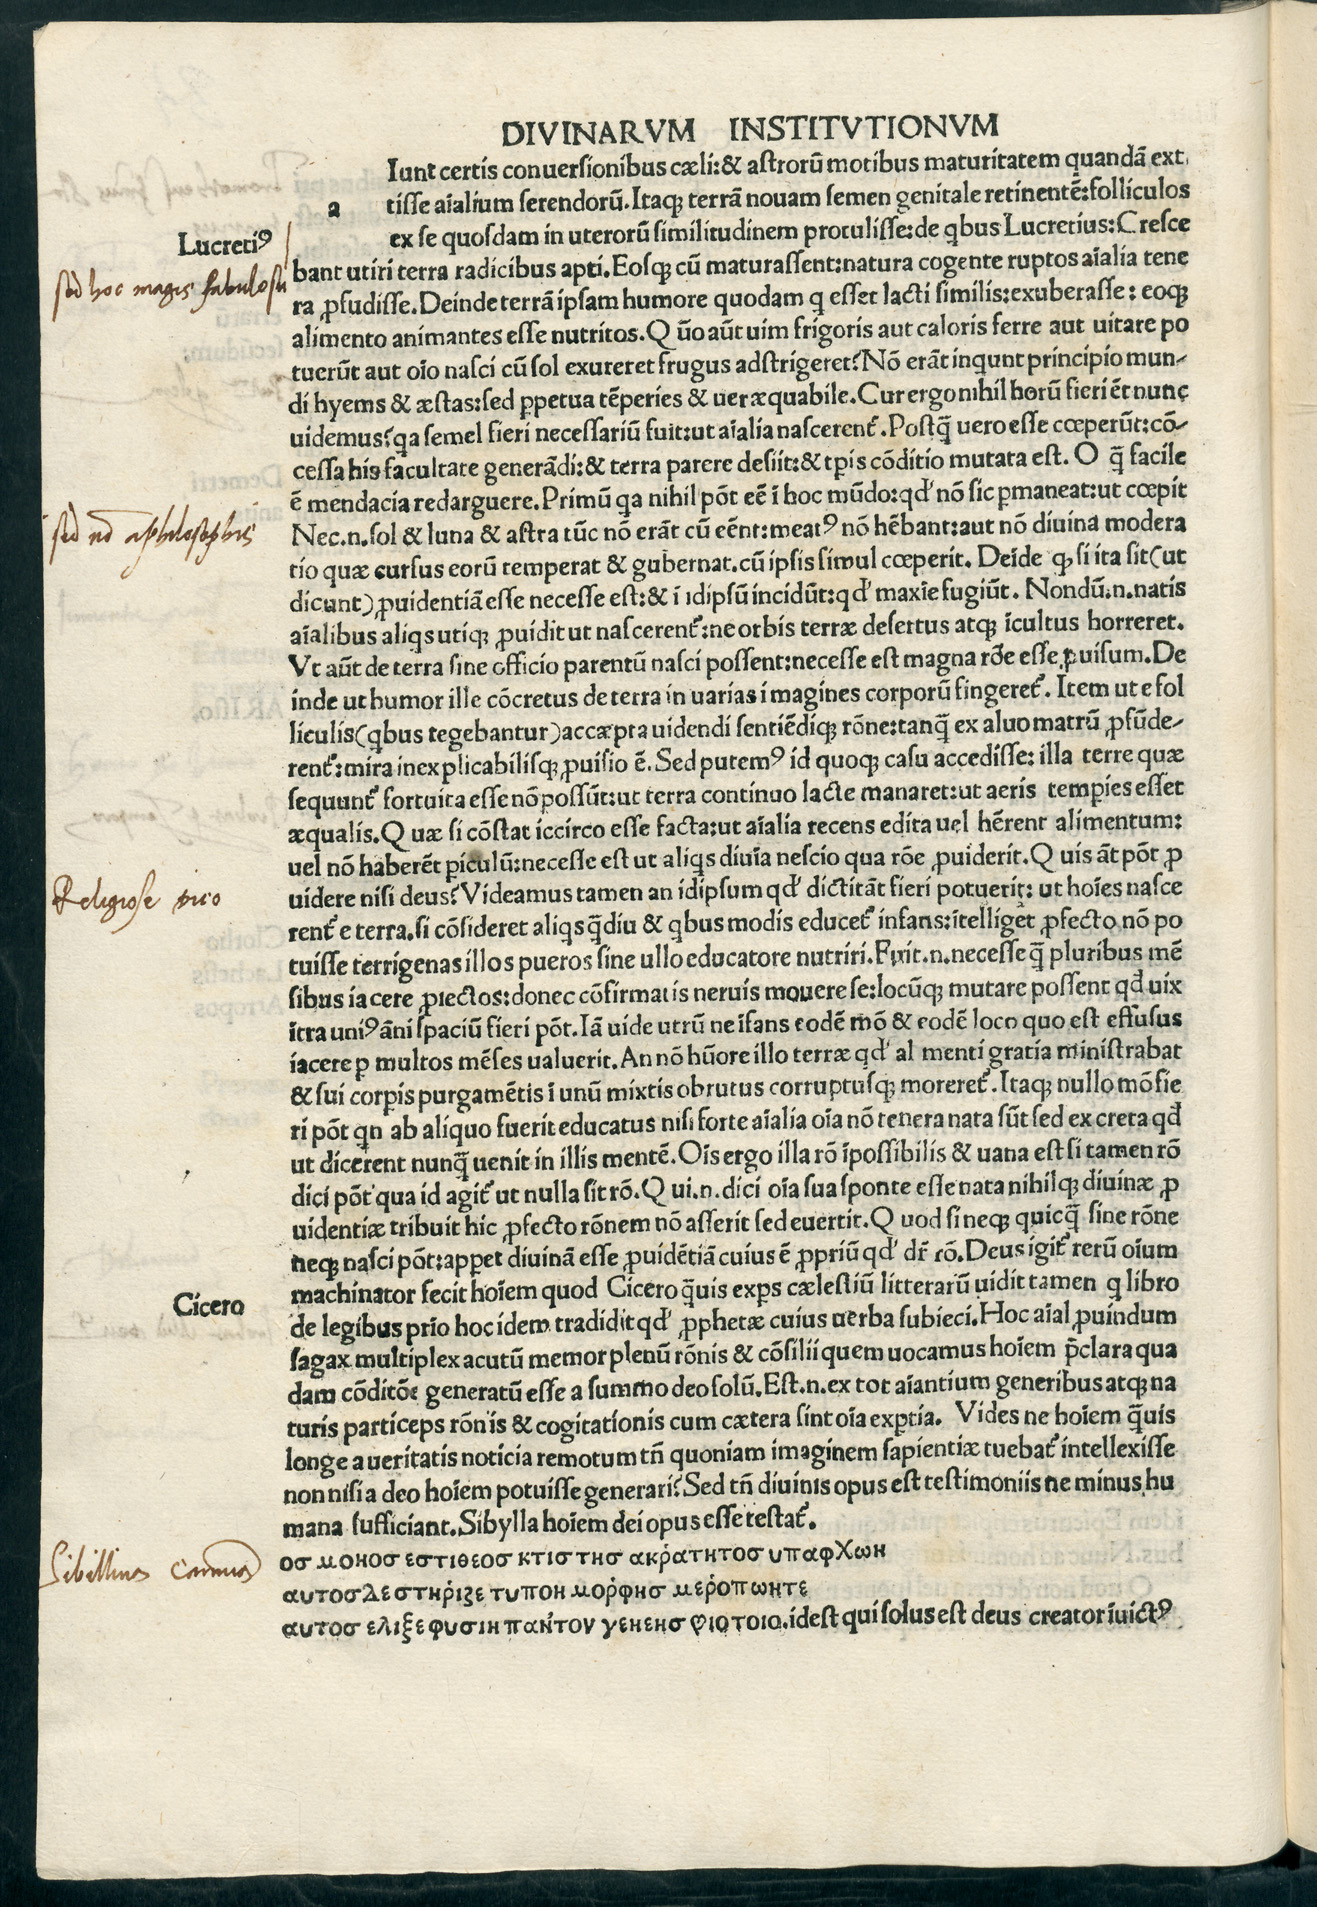 DIVINARVM INSTITVTIONVM
Iunt certis conuersionibus cæli:& astrorū motibus maturitatem quandā ext.
a
tisse aīalium serendorū.Itaqꝫ terrā nouam semen genitale retinentē:folliculos
Lucretiꝰ
ex se quosdam in uterorū similitudinem protulisse:de qbus Lucretius:Cresce
sed hoc magis fabulosū
bant utiri terra radicibus apti.Eosqꝫ cū maturassent:natura cogente ruptos aīalia tene
ra ꝓfudisse.Deinde terrā ipsam humore quodam q esset lacti similis:exuberasse: eoqꝫ
alimento animantes esse nutritos.Q ūo aūt uim frigoris aut caloris ferre aut uitare po
tuerūt aut oīo nasci cū sol exureret frugus adstrigeret?Nō erāt inqunt principio mun-
di hyems & æstas:sed ꝑpetua tēperies & uer æquabile.Cur ergo nihil horū fieri ēt nunc
uidemus?qa semel fieri necessariū fuit:ut aīalia nascerent᷑.Postq̄ uero esse cœperūt:cō-
cessa his facultate generādi:& terra parere desiit:& tꝑis cōditio mutata est. O q̄ facile
ē mendacia redarguere.Primū qa nihil pōt eē ī hoc mūdo:qd' nō sic ꝑmaneat:ut cœpit
sed nō a philosophis
Nec.n.sol & luna & astra tūc nō erāt cū eēnt:meatꝰ nō hēbant:aut nō diuina modera
tio quæ cursus eorū temperat & gubernat.cū ipsis simul cœperit. Deīde ꝙ si ita sit(ut
dicunt)ꝓuidentiā esse necesse est:& ī idipsū incidūt:qd' maxīe fugiūt. Nondū.n.natis
aīalibus aliqs utiqꝫ ꝓuidit ut nascerent᷑:ne orbis terræ desertus atqꝫ īcultus horreret.
Vt aūt de terra sine officio parentū nasci possent:necesse est magna rōe esse ꝓuisum.De
inde ut humor ille cōcretus de terra in uarias imagines corporū fingeret᷑. Item ut e fol
liculis(qbus tegebantur)accæpta uidendi sentiēdiqꝫ rōne:tanq̄ ex aluo matrū ꝓfūde-
rent᷑:mira inexplicabilisqꝫ ꝓuisio ē.Sed putemꝰ id quoqꝫ casu accedisse: illa terre quæ
sequunt᷑ fortuita esse nō possūt:ut terra continuo lacte manaret:ut aeris tempies esset
æqualis.Q uæ si cōstat iccirco esse facta:ut aīalia recens edita uel hērent alimentum:
uel nō haberēt ꝑiculū:necesse est ut aliqs diuīa nescio qua rōe ꝓuiderit.Q uis āt pōt ꝓ
Religiose vico
uidere nisi deus?Videamus tamen an idipsum qd' dictitāt fieri potuerit: ut hoīes nasce
rent᷑ e terra.si cōsideret aliqs q̄diu & qbus modis educet᷑ infans:ītelliget ꝓfecto nō po
tuisse terrigenas illos pueros sine ullo educatore nutriri.Fuit.n.necesse q̄ pluribus mē
sibus iacere ꝓiectos:donec cōfirmatis neruis mouere se:locūqꝫ mutare possent qd̄ uix
ītra uniꝰ āni spaciū fieri pōt.Iā uide utrū ne īfans eodē mō & eodē loco quo est effusus
iacere ꝑ multos mēses ualuerit.An nō hūore illo terræ qd' al menti gratia ministrabat
& sui corꝑis purgamētis ī unū mixtis obrutus corruptusqꝫ moreret᷑.Itaqꝫ nullo mō fie
ri pōt qn ab aliquo fuerit educatus nisi forte aīalia oīa nō tenera nata sūt sed ex creta qd̄
ut dicerent nunq̄ uenit in illis mentē.Oīs ergo illa rō īpossibilis & uana est si tamen rō
dici pōt qua id agit᷑ ut nulla sit rō.Q ui.n.dici oīa sua sponte esse nata nihilqꝫ diuinæ ꝓ
uidentiæ tribuit hic ꝓfecto rōnem nō asserit sed euertit.Q uod si neqꝫ quicq̄ sine rōne
neqꝫ nasci pōt:apꝑet diuinā esse ꝓuidētiā cuius ē ꝓpriū qd' dr̄ rō.Deus igit᷑ rerū oīum
Cicero
machinator fecit hoīem quod Cicero q̄uis exꝑs cælestiū litterarū uidit tamen q libro
de legibus prīo hoc idem tradidit qd' ꝓphetæ cuius uerba subieci.Hoc aīal ꝓuindum
sagax multiplex acutū memor plenū rōnis & cōsilii quem uocamus hoīem p̄clara qua
dam cōditōe generatū esse a summo deo solū.Est.n.ex tot aīantium generibus atqꝫ na
turis particeps rōnis & cogitationis cum cætera sint oīa exꝑtia. Vides ne hoīem q̄uis
longe a ueritatis noticia remotum tn̄ quoniam imaginem sapientiæ tuebat᷑ intellexisse
non nisi a deo hoīem potuisse generari?Sed tn̄ diuinis opus est testimoniis ne minus hu
mana sufficiant.Sibylla hoīem dei opus esse testat᷑.
Sibillina Carmina
οσ μονοσ εστιθεοσ κτιστησ ακρατητοσ υπαφχων
αυτοσΔεστηριζε τυπον μορφησ μεροπωντε
αυτοσ ελιξε φυσιν παντον γενεησ φιοτοιο.idest qui solus est deus creator īuictꝰ